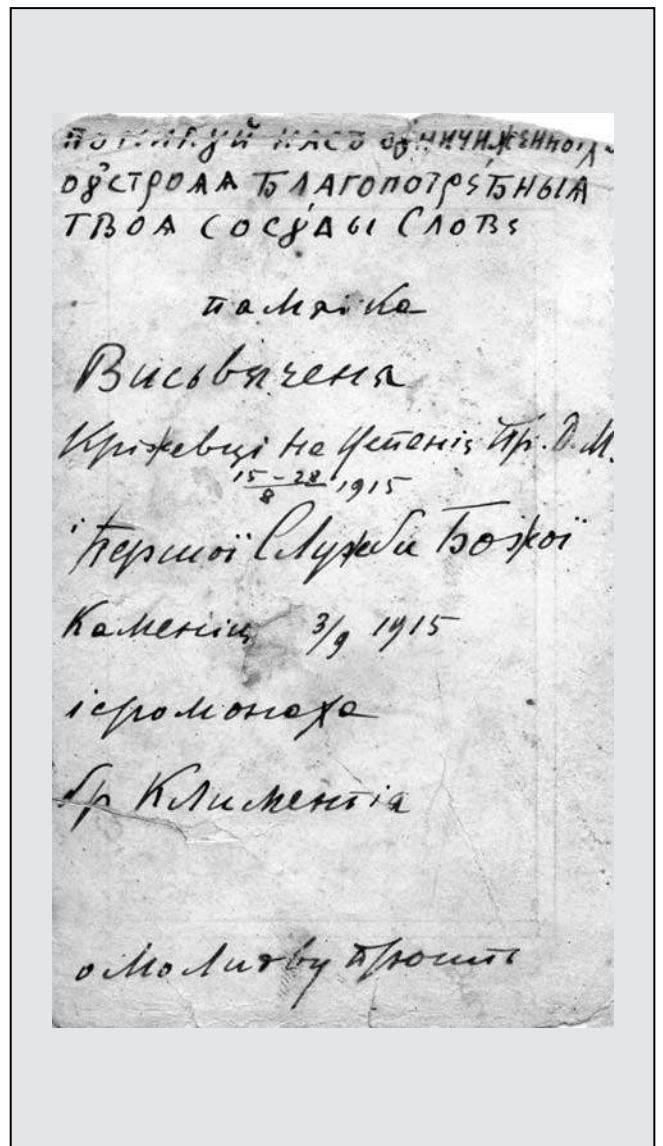 помилуй насъ ѹничиженныѧ
ѹстроѧѧ Благопотребныѧ
твоѧ сосуды Слове
памятка
Висьвяченя
Кріжевці на Успеніє Пр. Д. М.
15–28/8 1915
і Першої Служби Божої
Каменіц 3/9 1915
ієромонаха
бр Климентія
о молитву просить